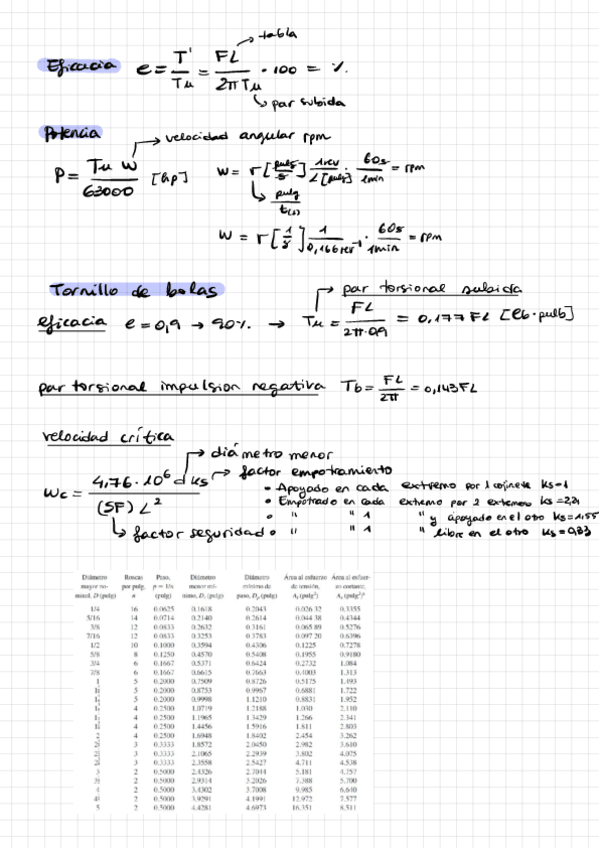 → tabla
Eficacia e = T'/Tu = FL/2πTu · 100 = %.
↳ par subida
Potencia → velocidad angular rpm
P = Tu w/63000 [hp] w = r [pulg/s] 1rev/L[pulg] · 60s/1min = rpm
↳ pulg/t(s)
w = r [1/s] 1/0,166rev⁻¹ · 60s/1min = rpm
Tornillo de bolas → par torsional subida
eficacia e = 0,9 → 90%. → Tu = FL/2π·0,9 = 0,177 FL [lb·pulb]
par torsional impulsion negativa Tb = FL/2π = 0,143FL
velocidad crítica
→ diámetro menor
Wc = 4,76·10⁶ d Ks/(SF) L² → factor empotramiento
• Apoyado en cada extremo por 1 cojinete Ks=1
• Empotrado en cada extremo por 2 extremos Ks=2,21
• " " 1 " y apoyado en el otro Ks=1,55
↳ factor seguridad • " " 1 " libre en el otro Ks=0,33
Diámetro Roscas Paso, Diámetro Diámetro Área al esfuerzo Área al esfuer-
mayor no- por pulg, p = 1/n menor mí- mínimo de de tensión, zo cortante,
minal, D (pulg) n (pulg) nimo, Dr (pulg) paso, Dp (pulg) At (pulg²) As (pulg²)ᵃ
1/4 16 0.0625 0.1618 0.2043 0.026 32 0.3355
5/16 14 0.0714 0.2140 0.2614 0.044 38 0.4344
3/8 12 0.0833 0.2632 0.3161 0.065 89 0.5276
7/16 12 0.0833 0.3253 0.3783 0.097 20 0.6396
1/2 10 0.1000 0.3594 0.4306 0.1225 0.7278
5/8 8 0.1250 0.4570 0.5408 0.1955 0.9180
3/4 6 0.1667 0.5371 0.6424 0.2732 1.084
7/8 6 0.1667 0.6615 0.7663 0.4003 1.313
1 5 0.2000 0.7509 0.8726 0.5175 1.493
5 0.2000 0.8753 0.9967 0.6881 1.722
5 0.2000 0.9998 1.1210 0.8831 1.952
4 0.2500 1.0719 1.2188 1.030 2.110
4 0.2500 1.1965 1.3429 1.266 2.341
4 0.2500 1.4456 1.5916 1.811 2.803
2 4 0.2500 1.6948 1.8402 2.454 3.262
3 0.3333 1.8572 2.0450 2.982 3.610
3 0.3333 2.1065 2.2939 3.802 4.075
3 0.3333 2.3558 2.5427 4.711 4.538
3 2 0.5000 2.4326 2.7044 5.181 4.757
2 0.5000 2.9314 3.2026 7.388 5.700
4 2 0.5000 3.4302 3.7008 9.985 6.640
2 0.5000 3.9291 4.1991 12.972 7.577
5 2 0.5000 4.4281 4.6973 16.351 8.511